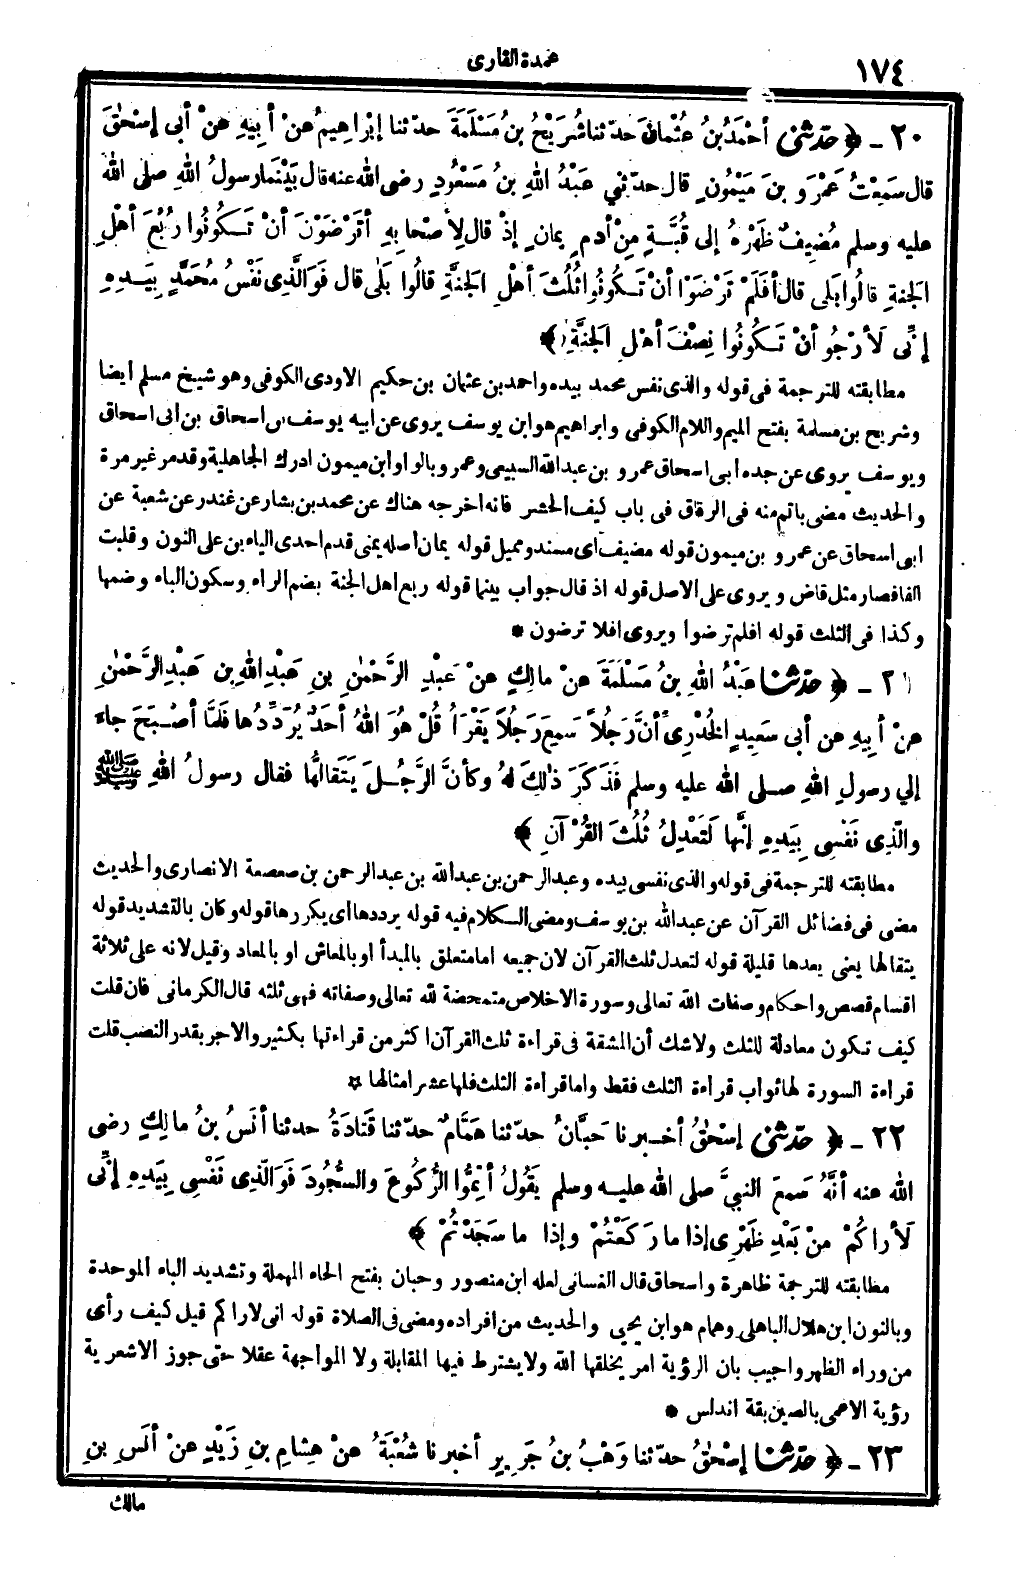 ١٧٤
عمدة القارى
٢٠ ـ ﴿ حدثنى أحْمَدُ بنُ عُثْمانَ حدثنا شُرَيْحُ بنُ مَسْلَمَةَ حدثنا إبْراهِيمُ عنْ أبِيهِ عنْ أبى إسْحٰقَ
قال سَمِعْتُ عَمْرَو بنَ مَيْمُونٍ قال حدّثني عَبْدُ اللهِ بنُ مَسْعُودٍ رضى الله عنه قال بَيْنَما رسولُ اللهِ صلى الله
عليه وسلم مُضِيفٌ ظَهْرَهُ إلى قُبَّةٍ مِنْ أدمٍ يمانٍ إذْ قال لِأصْحابِهِ أتَرْضَوْنَ أنْ تَكُونُوا رُبُعَ أهْلِ
الجنةِ قالُوا بَلى قال أفَلَمْ تَرْضَوْا أنْ تَكُونُوا ثُلُثَ أهْلِ الجنَّةِ قالُوا بَلٰى قال فَوَالَّذِى نَفْسُ مُحَمَّدٍ بِيَدِهِ
إنِّى لَأرْجُو أنْ تَكُونُوا نِصْفَ أهْلِ الجنَّةِ ﴾
مطابقته للترجمة فى قوله والذى نفس محمد بيده واحمد بن عثمان بن حكيم الاودى الكوفى وهو شيخ مسلم أيضا
وشريح بن مسلمة بفتح الميم واللام الكوفى وابراهيم هو ابن يوسف يروى عن ابيه يوسف بن اسحاق بن ابى اسحاق
ويوسف يروى عن جده أبى اسحاق عمرو بن عبد الله السبيعى وعمرو بالواو ابن ميمون ادرك الجاهلية وقد مر غير مرة
والحديث مضى باتم منه فى الرقاق فى باب كيف الحشر فانه اخرجه هناك عن محمد بن بشار عن غندر عن شعبة عن
ابى اسحاق عن عمرو بن ميمون قوله مضيف أى مسند ومميل قوله يمان اصله يمنى قدم احدى الياءين على النون وقلبت
الفا فصار مثل قاض ويروى على الاصل قوله اذ قال جواب بينما قوله ربع اهل الجنة بضم الراء وسكون الباء وضمها
وكذا فى الثلث قوله افلم ترضوا ويروى افلا ترضون *
٢١ ـ ﴿ حدثنا عَبْدُ اللهِ بنُ مَسْلَمَةَ عنْ مالِكٍ عنْ عَبْدِ الرَّحْمٰنِ بنِ عَبْدِ اللهِ بنِ عَبْدِ الرَّحْمٰنِ
عنْ أبِيهِ عن أبى سَعِيدٍ الخُدْرِىِّ أنَّ رَجُلاً سَمِعَ رَجُلاً يَقْرَأُ قُلْ هُوَ اللهُ أحَدٌ يُرَدِّدُها فَلَمَّا أصْبَحَ جاءَ
إلي رسولِ اللهِ صلى الله عليه وسلم فَذَكَرَ ذٰلِكَ لهُ وكأنَّ الرَّجُلَ يَتَقالُّها فقال رسولُ اللهِ ﷺ
والّذِى نَفْسِى بِيَدِهِ إنَّها لَتَعْدِلُ ثُلُثَ القُرْآنِ ﴾
مطابقته للترجمة فى قوله والذى نفسى بيده وعبد الرحمن بن عبد الله بن عبد الرحمن بن صعصعة الانصارى والحديث
مضى فى فضائل القرآن عن عبدالله بن يوسف ومضى الكلام فيه قوله يرددها اى يكررها قوله وكان بالتشديد قوله
يتقالها يعنى يعدها قليلة قوله لتعدل ثلث القرآن لان جميعه اما متعلق بالمبدأ أو بالمعاش او بالمعاد وقيل لانه على ثلاثة
اقسام قصص واحكام وصفات الله تعالى وسورة الاخلاص متمحضة لله تعالى وصفاته فهى ثلثه قال الكرمانى فان قلت
كيف تكون معادلة للثلث ولاشك أن المشقة فى قراءة ثلث القرآن اكثر من قراءتها بكثير والاجر بقدر النصب قلت
قراءة السورة لها ثواب قراءة الثلث فقط واما قراءة الثلث فلها عشر امثالها *
٢٢ ـ ﴿ حدّثنى إسْحٰقُ أخبرنا حَبَّانُ حدثنا هَمَّامٌ حدّثنا قَتَادَةُ حدثنا أنَسُ بنُ مالِكٍ رضى
الله عنه أنَّهُ سَمِعَ النبىَّ صلى الله عليه وسلم يَقُولُ أتِمُّوا الرُّكُوعَ والسُّجُودَ فَوَالّذِى نَفْسِى بِيَدِهِ إنِّى
لَأراكُمْ مِنْ بَعْدِ ظَهْرِى إذا ما رَكَعْتُمْ وإذا ما سَجَدْتُمْ ﴾
مطابقته للترجمة ظاهرة واسحاق قال الغسانى لعله ابن منصور وحبان بفتح الحاء المهملة وتشديد الباء الموحدة
وبالنون ابن هلال الباهلى وهمام هو ابن يحيى والحديث من افراده ومضى فى الصلاة قوله انى لاراكم قيل كيف رأى
من وراء الظهر واجيب بان الرؤية امر يخلقها الله ولا يشترط فيها المقابلة ولا المواجهة عقلا حتى جوز الاشعرية
رؤية الاعمى بالصين بقة اندلس *
٢٣ ـ ﴿ حدّثنا إسْحٰقُ حدّثنا وَهْبُ بنُ جَرِيرٍ أخبرنا شُعْبَةُ عنْ هِشامِ بنِ زَيْدٍ عنْ أنَسِ بنِ
مالك